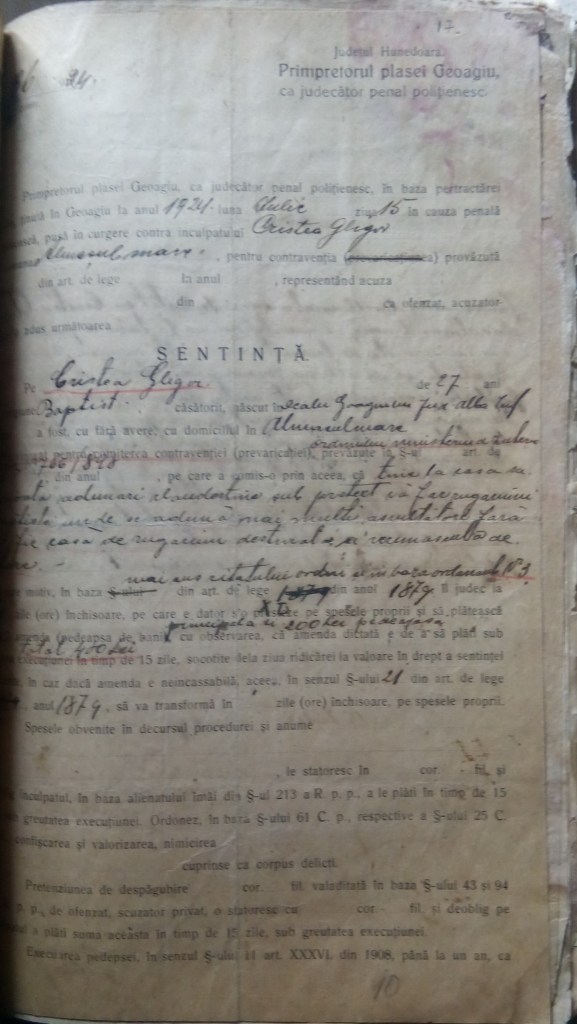 17.
Județul Hunedoara.
24.
Primpretorul plasei Geoagiu,
ca judecător penal polițienesc
Primpretorul plasei Geoagiu, ca judecător penal polițienesc, în baza pertractărei
în Geoagiu la anul 1924 luna Iulie ziua 15 în cauza penală
pusă în curgere contra inculpatului Cristea Gligor
Almașul mare, pentru contravenția provăzută
din art. de lege la anul , reprezentând acuza
din ca ofenzat, acuzator-
adus următoarea
SENTINȚĂ.
Pe Cristea Gligor de 27 ani
Baptist, căsătorit, născut în
a fost, cu fără avere, cu domiciliul în Almașul mare
ordinului ministerului
pentru comiterea contravenției (prevaricației), prevăzute la §-ul art. de
din anul , pe care a comis-o prin aceea, că ține la casa sa
adunari clandestine sub pretext că face rugaciuni
unde se adună mai mulți ascultatori fară
casa de rugaciuni destinata si recunoscută de
mai sus citatului ordin si in baza ordonanței N° 3
motiv, în baza §-ului din art. de lege din anul 1879 îl judec la
zile (ore) închisoare, pe care e dator s'o pe spesele proprii și să plătească
principala si 200 Lei pedeapsa
amenda (pedeapsa de bani) cu observarea, că amenda dictată e de a să plăti sub
total 400 Lei
execuțiunei în timp de 15 zile, socotite dela ziua ridicărei la valoare în drept a sentinței
în caz dacă amenda e neincassabilă, aceea, în senzul §-ului 21 din art. de lege
, anul 1879, să va transformă în zile (ore) închisoare, pe spesele proprii.
Spesele obvenite în decursul procedurei și anume
, le statoresc în cor. fil. și
inculpatul, în baza alienatului întâi din §-ul 213 a R. p. p., a le plăti în timp de 15
greutatea execuțiunei. Ordonez, în baza §-ului 61 C. p., respective a §-ului 25 C.
confișcarea și valorizarea, nimicirea
cuprinse ca corpus delicti.
Pretenziunea de despăgubire cor. fil. validitată în baza §-ului 43 și 94
p. p., de ofenzat, acuzator privat, o statoresc cu cor. fil. și deoblig pe
a plăti suma aceasta în timp de 15 zile, sub greutatea execuțiunei.
Executarea pedepsei, în senzul §-ului 11 art. XXXVI. din 1908, până la un an, ca
10